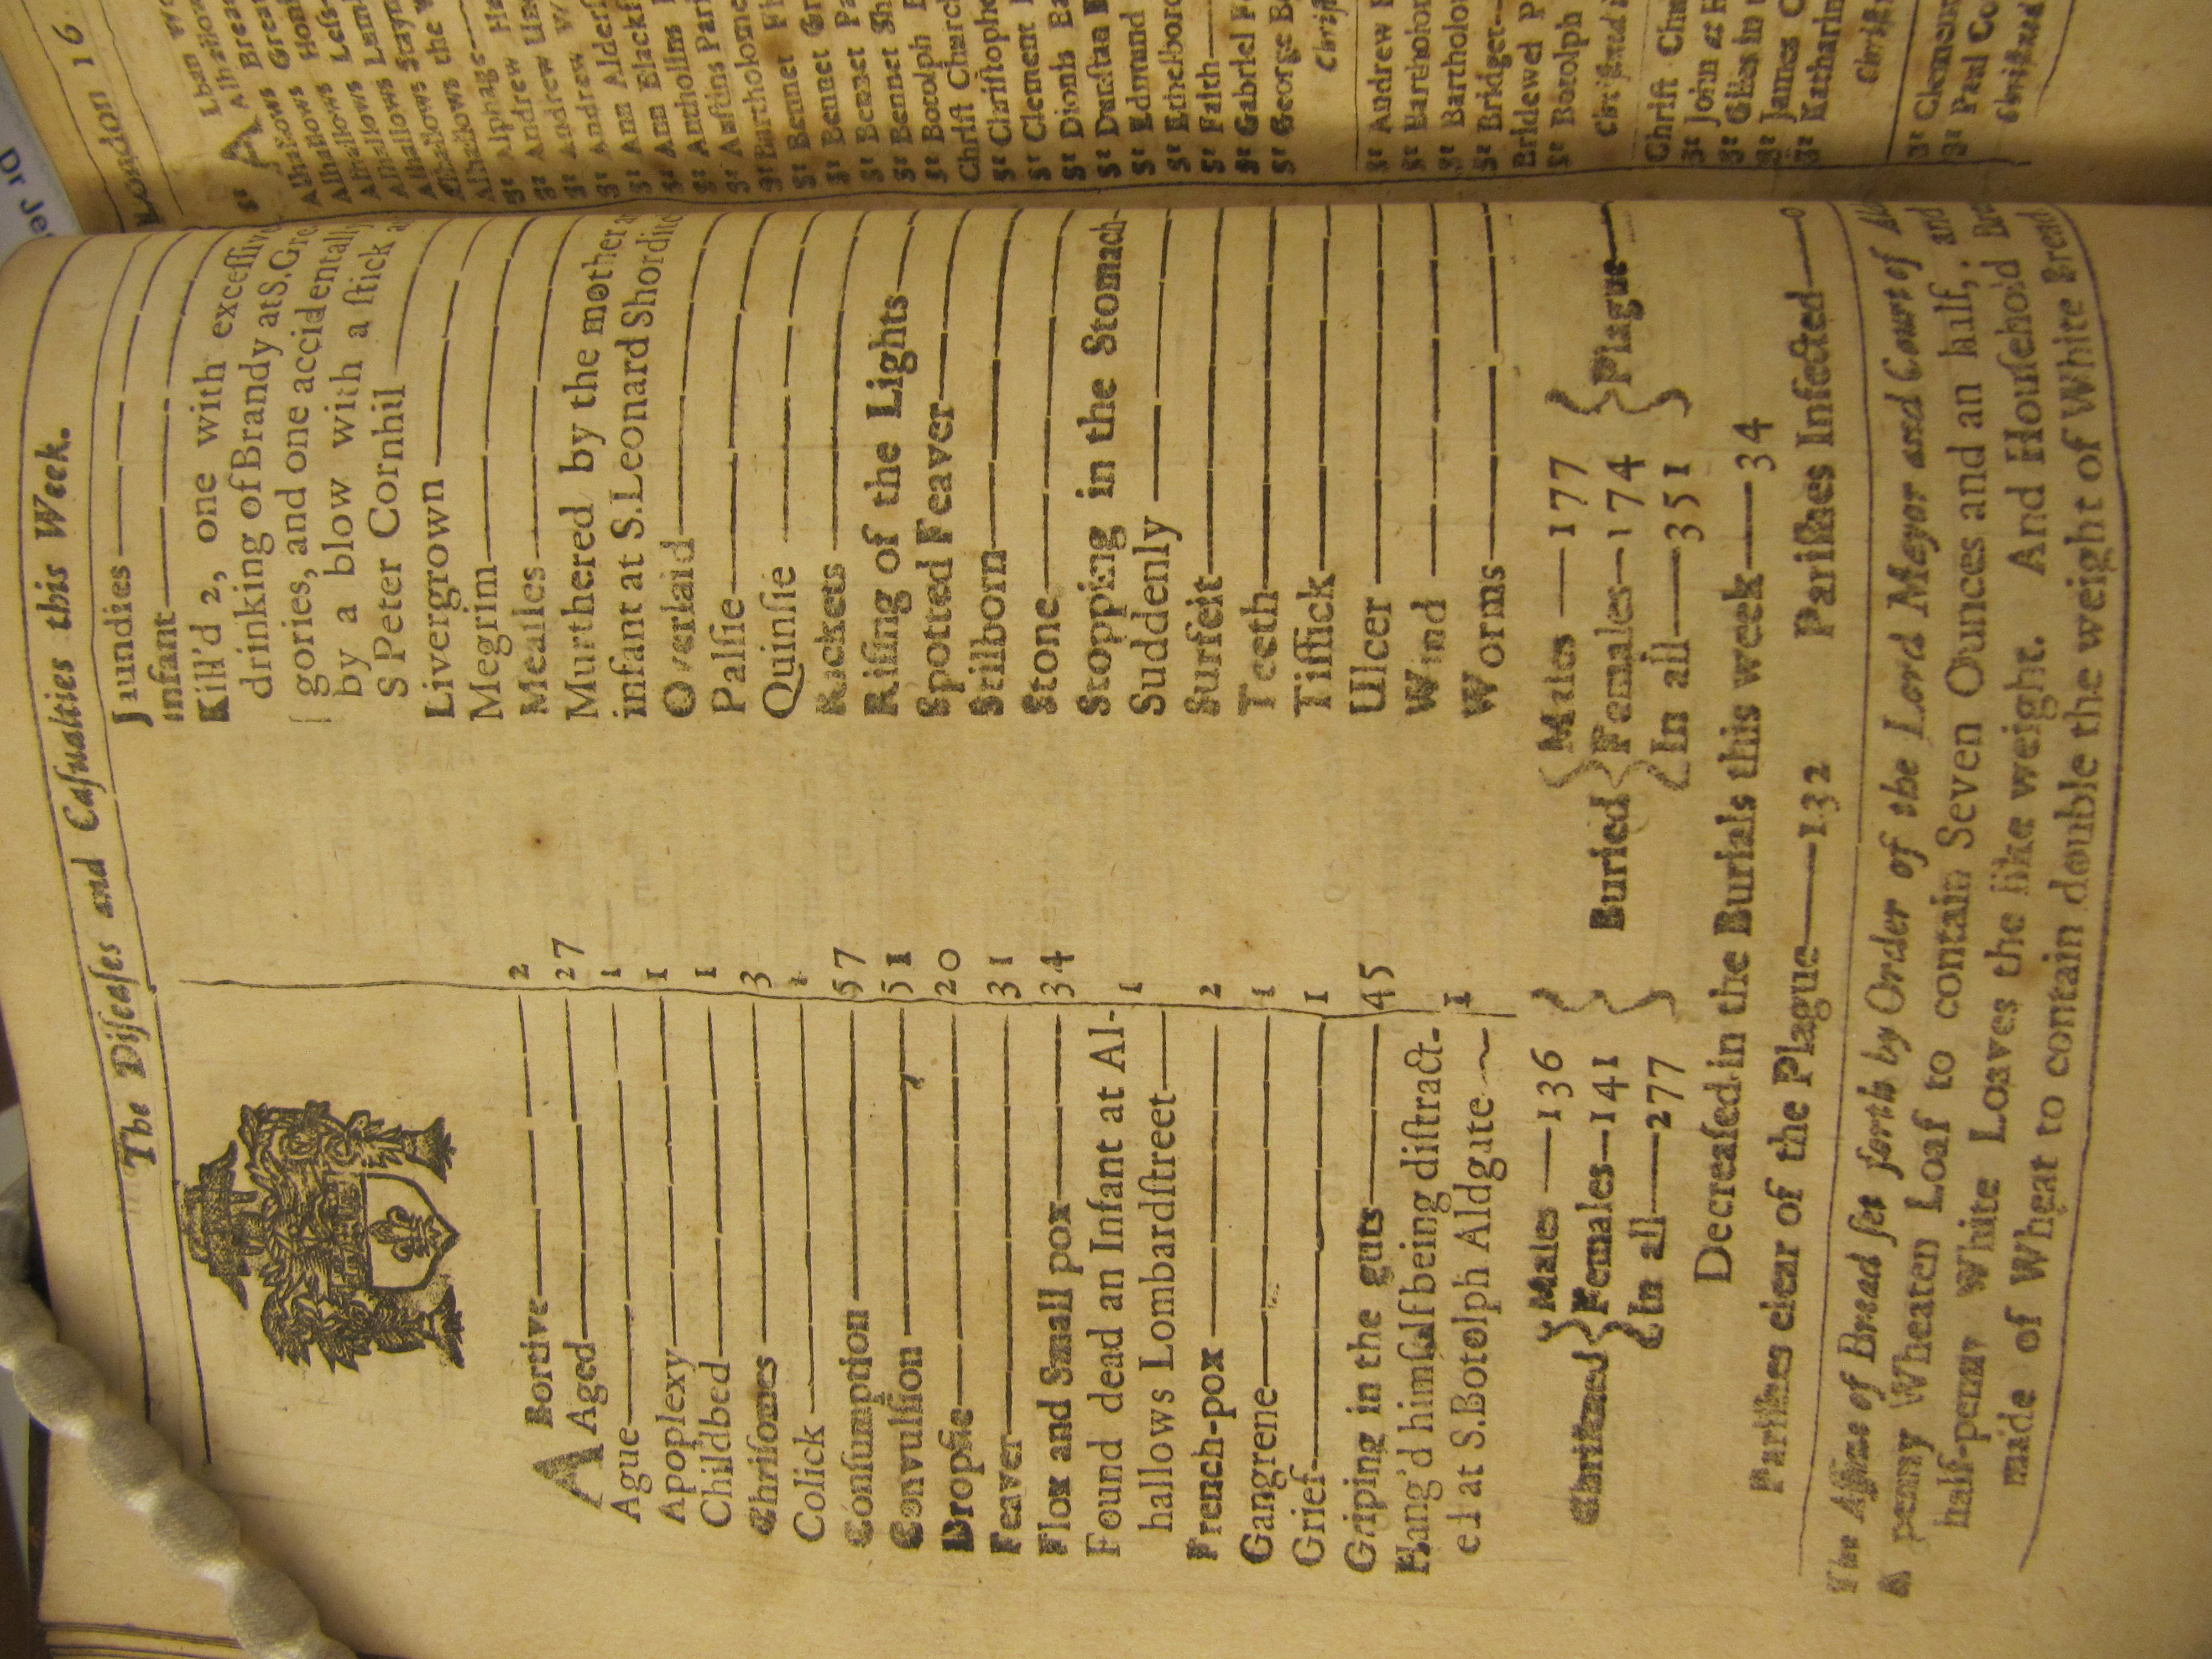 The Diſeaſes and Caſualties this Week.
ABortive—2
Aged—27
Ague—1
Apoplexy—1
Childbed—1
Chriſomes—3
Colick—1
Conſumption—57
Convulſion—51
Dropſie—20
Feaver—31
Flox and Small pox—34
Found dead an Infant at Al-
hallows Lombardſtreet—1
French-pox—2
Gangrene—1
Grief—1
Griping in the guts—45
Hang'd himſelf being diſtract-
ed at S.Botolph Aldgate—1
Jaundies—
Infant—
Kill'd 2, one with exceſſive
drinking of Brandy at S.Gre
gories, and one accidentally
by a blow with a ſtick a
S Peter Cornhil—
Livergrown—
Megrim—
Meaſles—
Murthered by the mother a
infant at S.Leonard Shordit
Overlaid—
Palſie—
Quinſie—
Rickets—
Riſing of the Lights—
Spotted Feaver—
Stilborn—
Stone—
Stopping in the Stomach-
Suddenly—
Surfeit—
Teeth—
Tiſſick—
Ulcer—
Wind—
Worms—
Chriſtned { Males—136 Females—141 In all—277 }
Buried { Males—177 Females—174 In all—351 } Plague—
Decreaſed in the Burials this week—34
Pariſhes clear of the Plague—132 Pariſhes Infected—0
The Aſſize of Bread ſet forth by Order of the Lord Mayor and Court of
A penny Wheaten Loaf to contain Seven Ounces and an half, and
half-penny White Loaves the like weight. And Houſehold Bre
made of Wheat to contain double the weight of White Bread
London 16
Sᵗ ALban Wo
Alhallow
Alhallows Brea
Alhallows Grea
Alhallows Hon
Alhallows Leſs
Alhallows Lum
Alhallows Stayn
Alhallows the W
Alhallows the
Sᵗ Alphage—
Sᵗ Andrew H
Sᵗ Andrew Un
Sᵗ Andrew W
Sᵗ Ann Alderſ
Sᵗ Ann Blackf
Sᵗ Antholins
Sᵗ Auſtins Pari
Sᵗ Bartholome
Sᵗ Bennet Fi
Sᵗ Bennet Gr
Sᵗ Bennet Pa
Sᵗ Bennet Sh
Sᵗ Botolph
Chriſt Church
Sᵗ Chriſtophe
Sᵗ Clement
Sᵗ Dionis Ba
Sᵗ Dunſtan
Sᵗ Edmund
Sᵗ Ethelboro
Sᵗ Faith—
Sᵗ Gabriel F
Sᵗ George B
Chriſt
Sᵗ Andrew
Sᵗ Bartholom
Sᵗ Bartholo
Sᵗ Bridget—
Bridewel P
Sᵗ Botolph
Chriſtned i
Chriſt Chu
Sᵗ John at H
Sᵗ Giles in
Sᵗ James C
Sᵗ Katharin
Chriſt
Sᵗ Clemen
Sᵗ Paul Co
Chriſtned